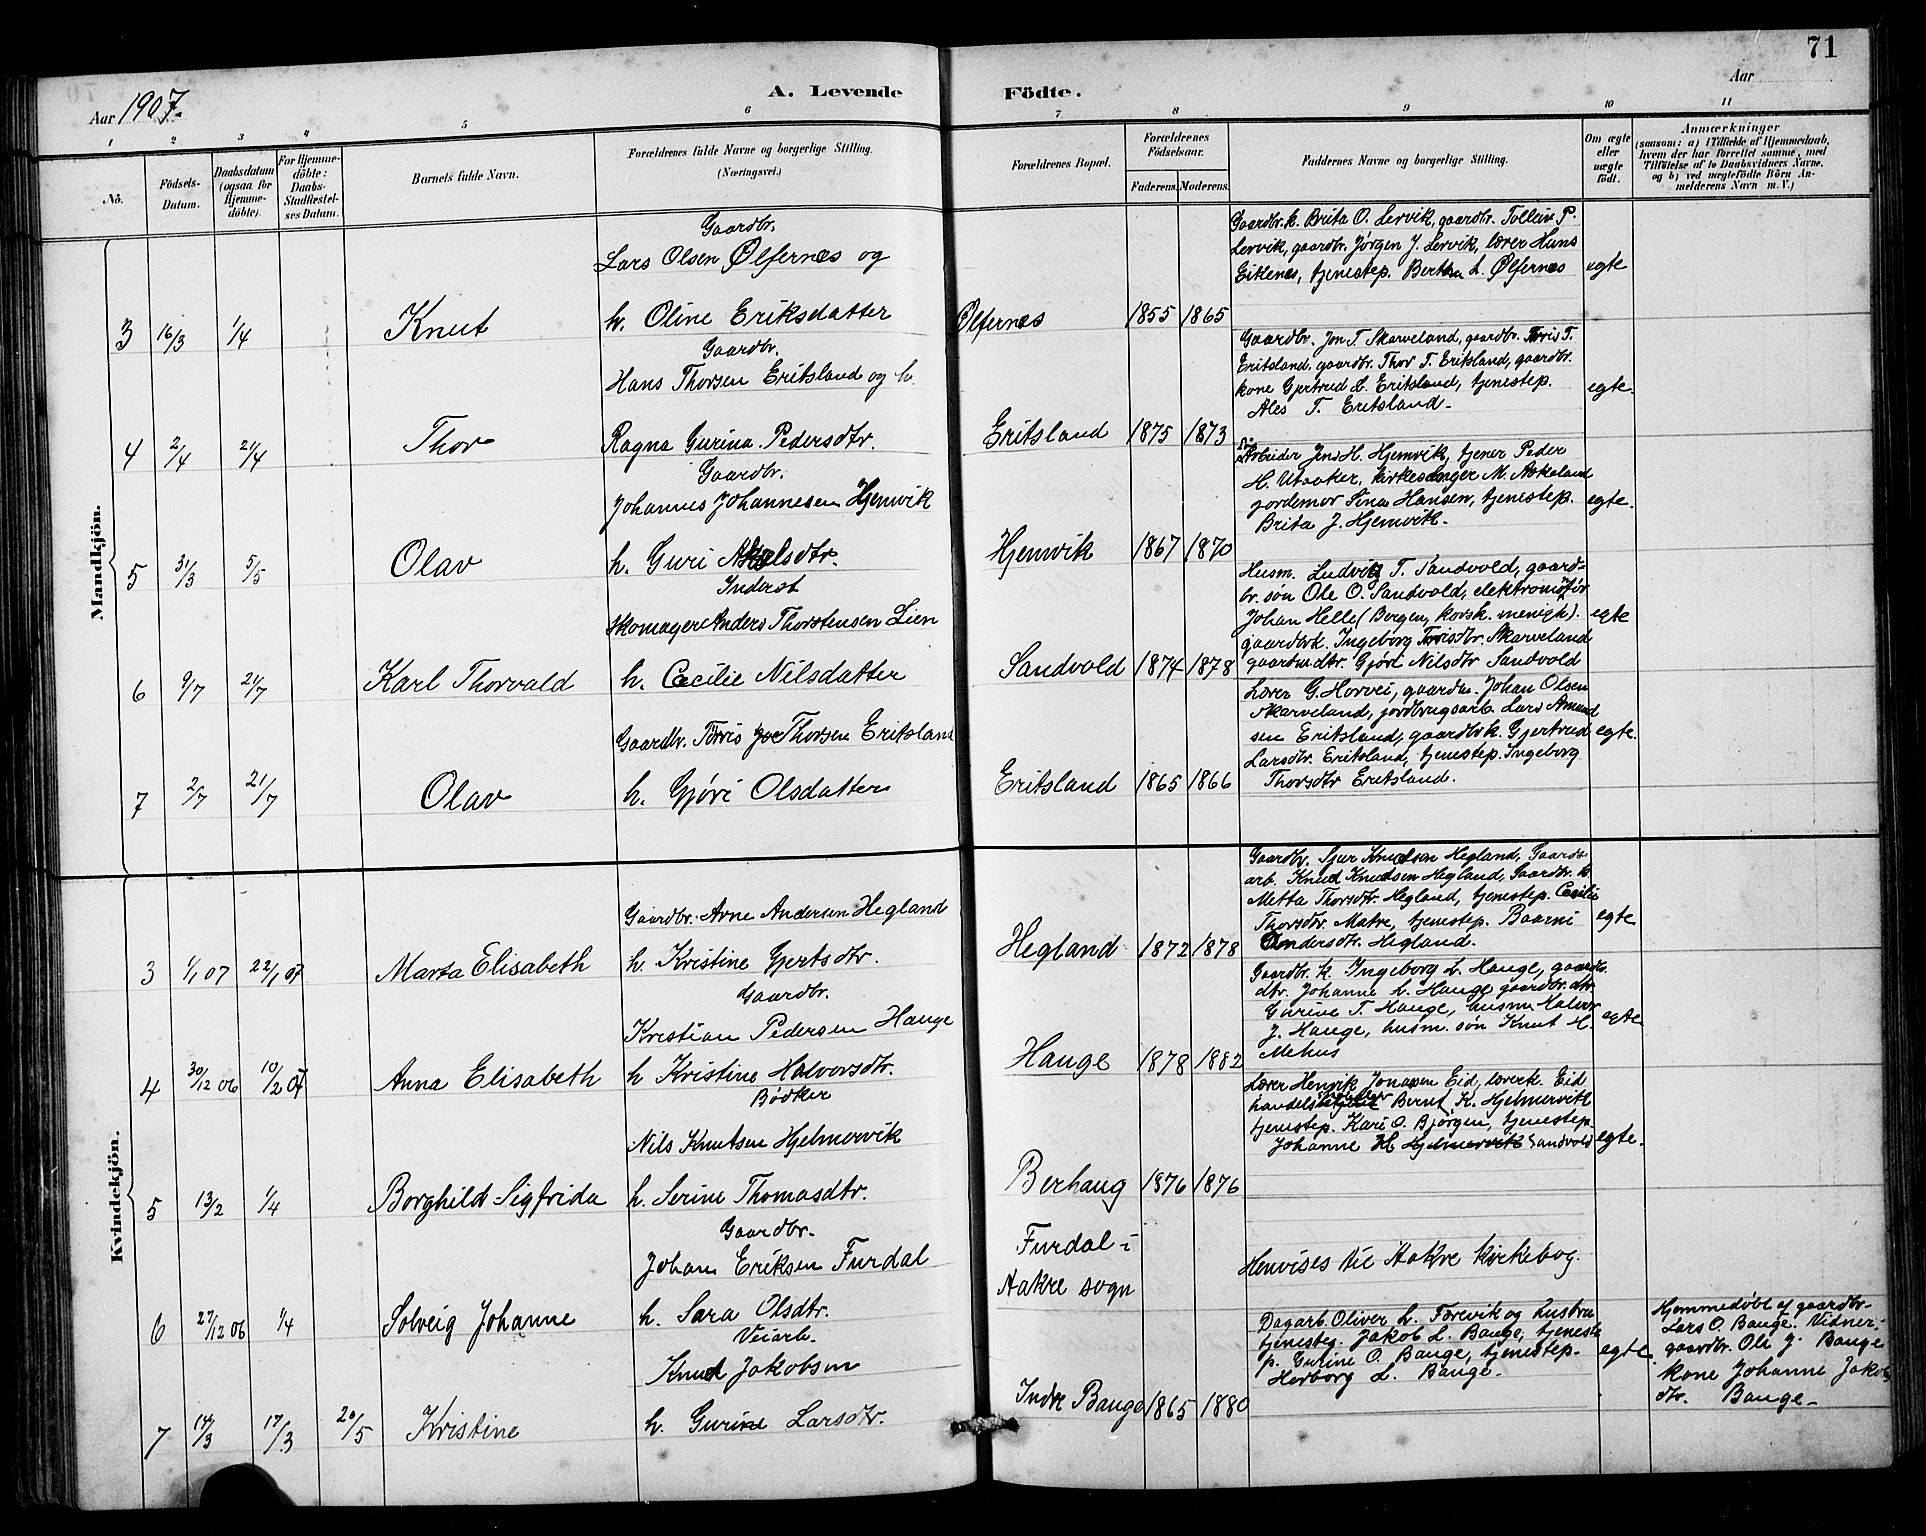 71
Aar 1907.
A. Levende Födte.
Aar
1 2 3 4 5 6 7 8 9 10 11
Nö.
Födsels-Datum.
Daabsdatum (ogsaa for Hjemmedöbte).
For Hjemmedöbte: Daabs-Stadfæstelses Datum.
Barnets fulde Navn.
Forældrenes fulde Navne og borgerlige Stilling. (Næringsvei.)
Forældrenes Bopæl.
Forældrenes Födselsaar.
Faderens. Moderens.
Faddernes Navne og borgerlige Stilling.
Om ægte eller uægte födt.
Anmærkninger
(saasom: a) i Tilfælde af Hjemmedaab, hvem der har forrettet samme, med Tilföielse af to Daabsvidners Navne, og b) ved uægtefödte Börn Anmelderens Navn m. V.)
Mandkjön.
Gaardbr.
Lars Olsen Ølfernes og
3 16/3 1/4 Knut h. Oline Eriksdatter Ølfernes 1855 1865
Gaardbr. k. Brita O. Lervik, gaardbr. Tolleiv P.
Lervik, gaardbr. Jørgen J. Lervik, lærer Hans
Eitlenes, tjenestep. Bertha L. Ølfernes egte
Gaardbr.
Hans Thorsen Eritsland og h.
4 2/4 21/4 Thor Ragna Gurina Pedersdtr. Eritsland 1875 1873
Gaardbr. Jon T. Skarveland, gaardbr. Torris T.
Eritsland, gaardbr. Thor T. Eritsland, gaardbr.
kone Gjertrud L. Eritsland, tjenestep. egte.
Ales T. Eritsland.
Gaardbr.
Johannes Johannesen Hjemvik
5 31/3 5/5 Olav h. Guri Hjemvik 1867 1870
Arbeider Jens H. Hjemvik, tjener Peder
H. Utaaker, kirkesanger M. Askeland
jordemor Sina Hansen, tjenestep. egte.
Brita J. Hjemvik.
Inderst
Skomager Anders Thorstensen Lien
6 9/7 21/7 Karl Thorvald h. Cecilie Nilsdatter Sandvold 1874 1878
Husm. Ludvig T. Sandvold, gaard-
br. søn Ole O. Sandvold, elektromotør
Johan Helle (Bergen, norsk. menigh). egte
gaardbrk. Ingeborg Torrisdtr. Skarveland
gaardm.dtr. Gjøri Nilsdtr Sandvold
Gaardbr. Torris Thorsen Eritsland
7 2/7 21/7 Olav h. Gjøri Olsdatter Eritsland 1865 1866
Lærer G. Horvei, gaardm. Johan Olsen
Skarveland, jordbrugsarb. Lars Amund
sen Eritsland, gaardbrk. Gjertrud egte.
Larsdtr. Eritsland, tjenestep. Ingeborg
Thorsdtr Eritsland.
Kvindekjön.
Gaardbr. Arne Andersen Hegland
3 1/1 07 22/1 07 Marta Elisabeth h. Kristine Gjertsdtr. Hegland 1872 1878
Gaardbr. Sjur Knudsen Hegland, Gaards
arb. Knud Knudsen Hegland, Gaardbr. k
Metta Thorsdtr Hegland, tjenestep. Cecilie
Thorsdtr. Matre, tjenestep. Baarni egte
Andersdtr. Hegland.
Gaardbr.
Kristian Pedersen Hauge
4 30/12 06 10/2 07 Anna Elisabeth h Kristine Halvorsdtr. Hauge 1878 1882
Gaardbr. k. Ingeborg L. Hauge, gaardbr.
dtr. Johanne L. Hauge gaardbr. dtr.
Gurine T. Hauge, husm Halvor
J. Hauge, husm. søn Knut H. egte
Mehus
Bødker
Nils Knutsen Hjelmervik
5 13/2 1/4 Borghild Sigfrida h. Serine Thomasdtr. Berhaug 1876 1876
Lærer Henrik Jonassen Eid, lærerk. Eid
handels Bernt K. Hjelmervik
tjenestep. Kari O. Bjørgen, tjenestep.
Johanne H. Hjelmervik Sandvold egte.
Gaardbr.
Johan Eriksen Furdal
6 27/12 06 1/4 Solveig Johanne h. Sara Olsdtr. Furdal i
Aakre sogn
Henvises til Aakre kirkebog.
Veiarb.
Knud Jakobsen
7 14/3 17/3 20/5 Kristine h. Gurine Larsdtr. Indre Bauge 1865 1880
Dagarb. Oliver L. Forevik og hustru
tjenesteg. Jakob L. Bauge, tjeneste
p. Gurine O. Bauge, tjenestep. egte
Herborg L. Bauge.
Hjemmedøbt af gaardbr.
Lars O. Bauge. Vidner:
gaardbr. Ole J. Bauge
kone Johanne Jakobs
dtr. Bauge.